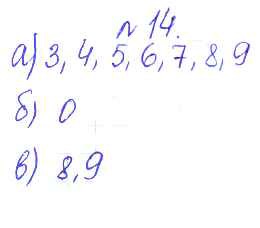 № 14.
а) 3, 4, 5, 6, 7, 8, 9
б) 0
в) 8, 9